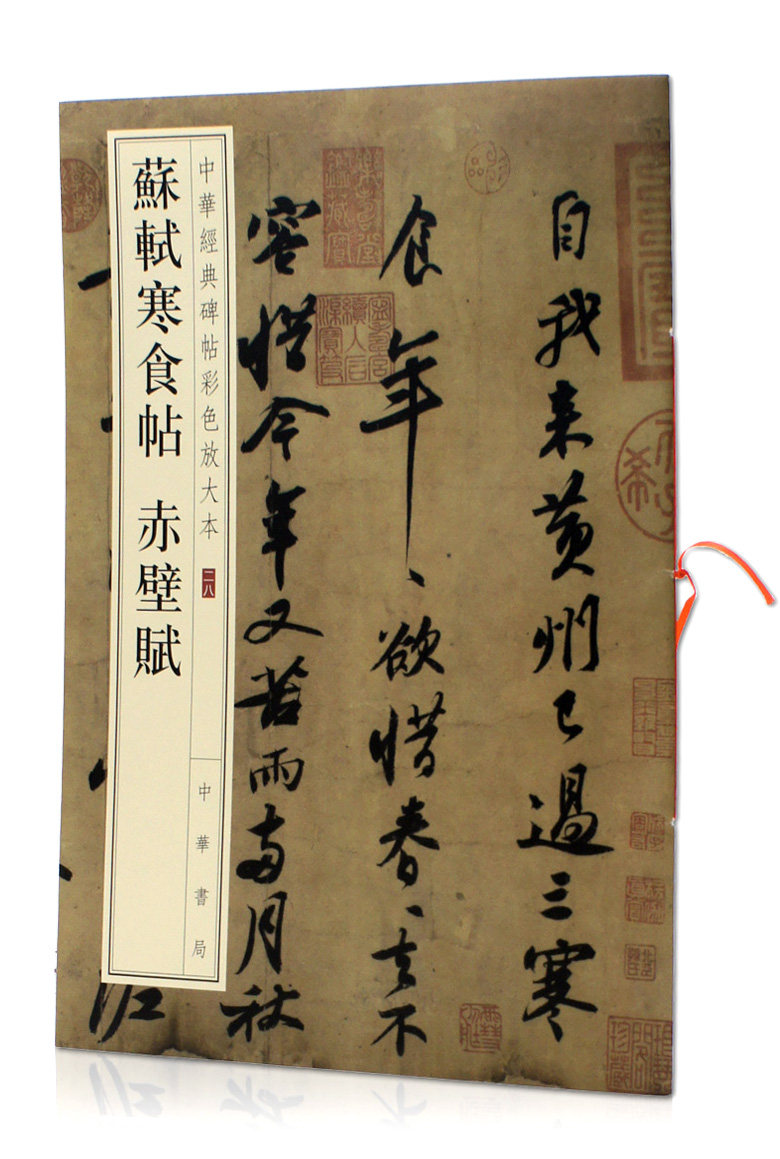 自我来黄州已過三寒
食年、欲惜春、去不
容惜今年又苦雨兩月秋
中華經典碑帖彩色放大本 二八
中華書局
蘇軾寒食帖 赤壁賦